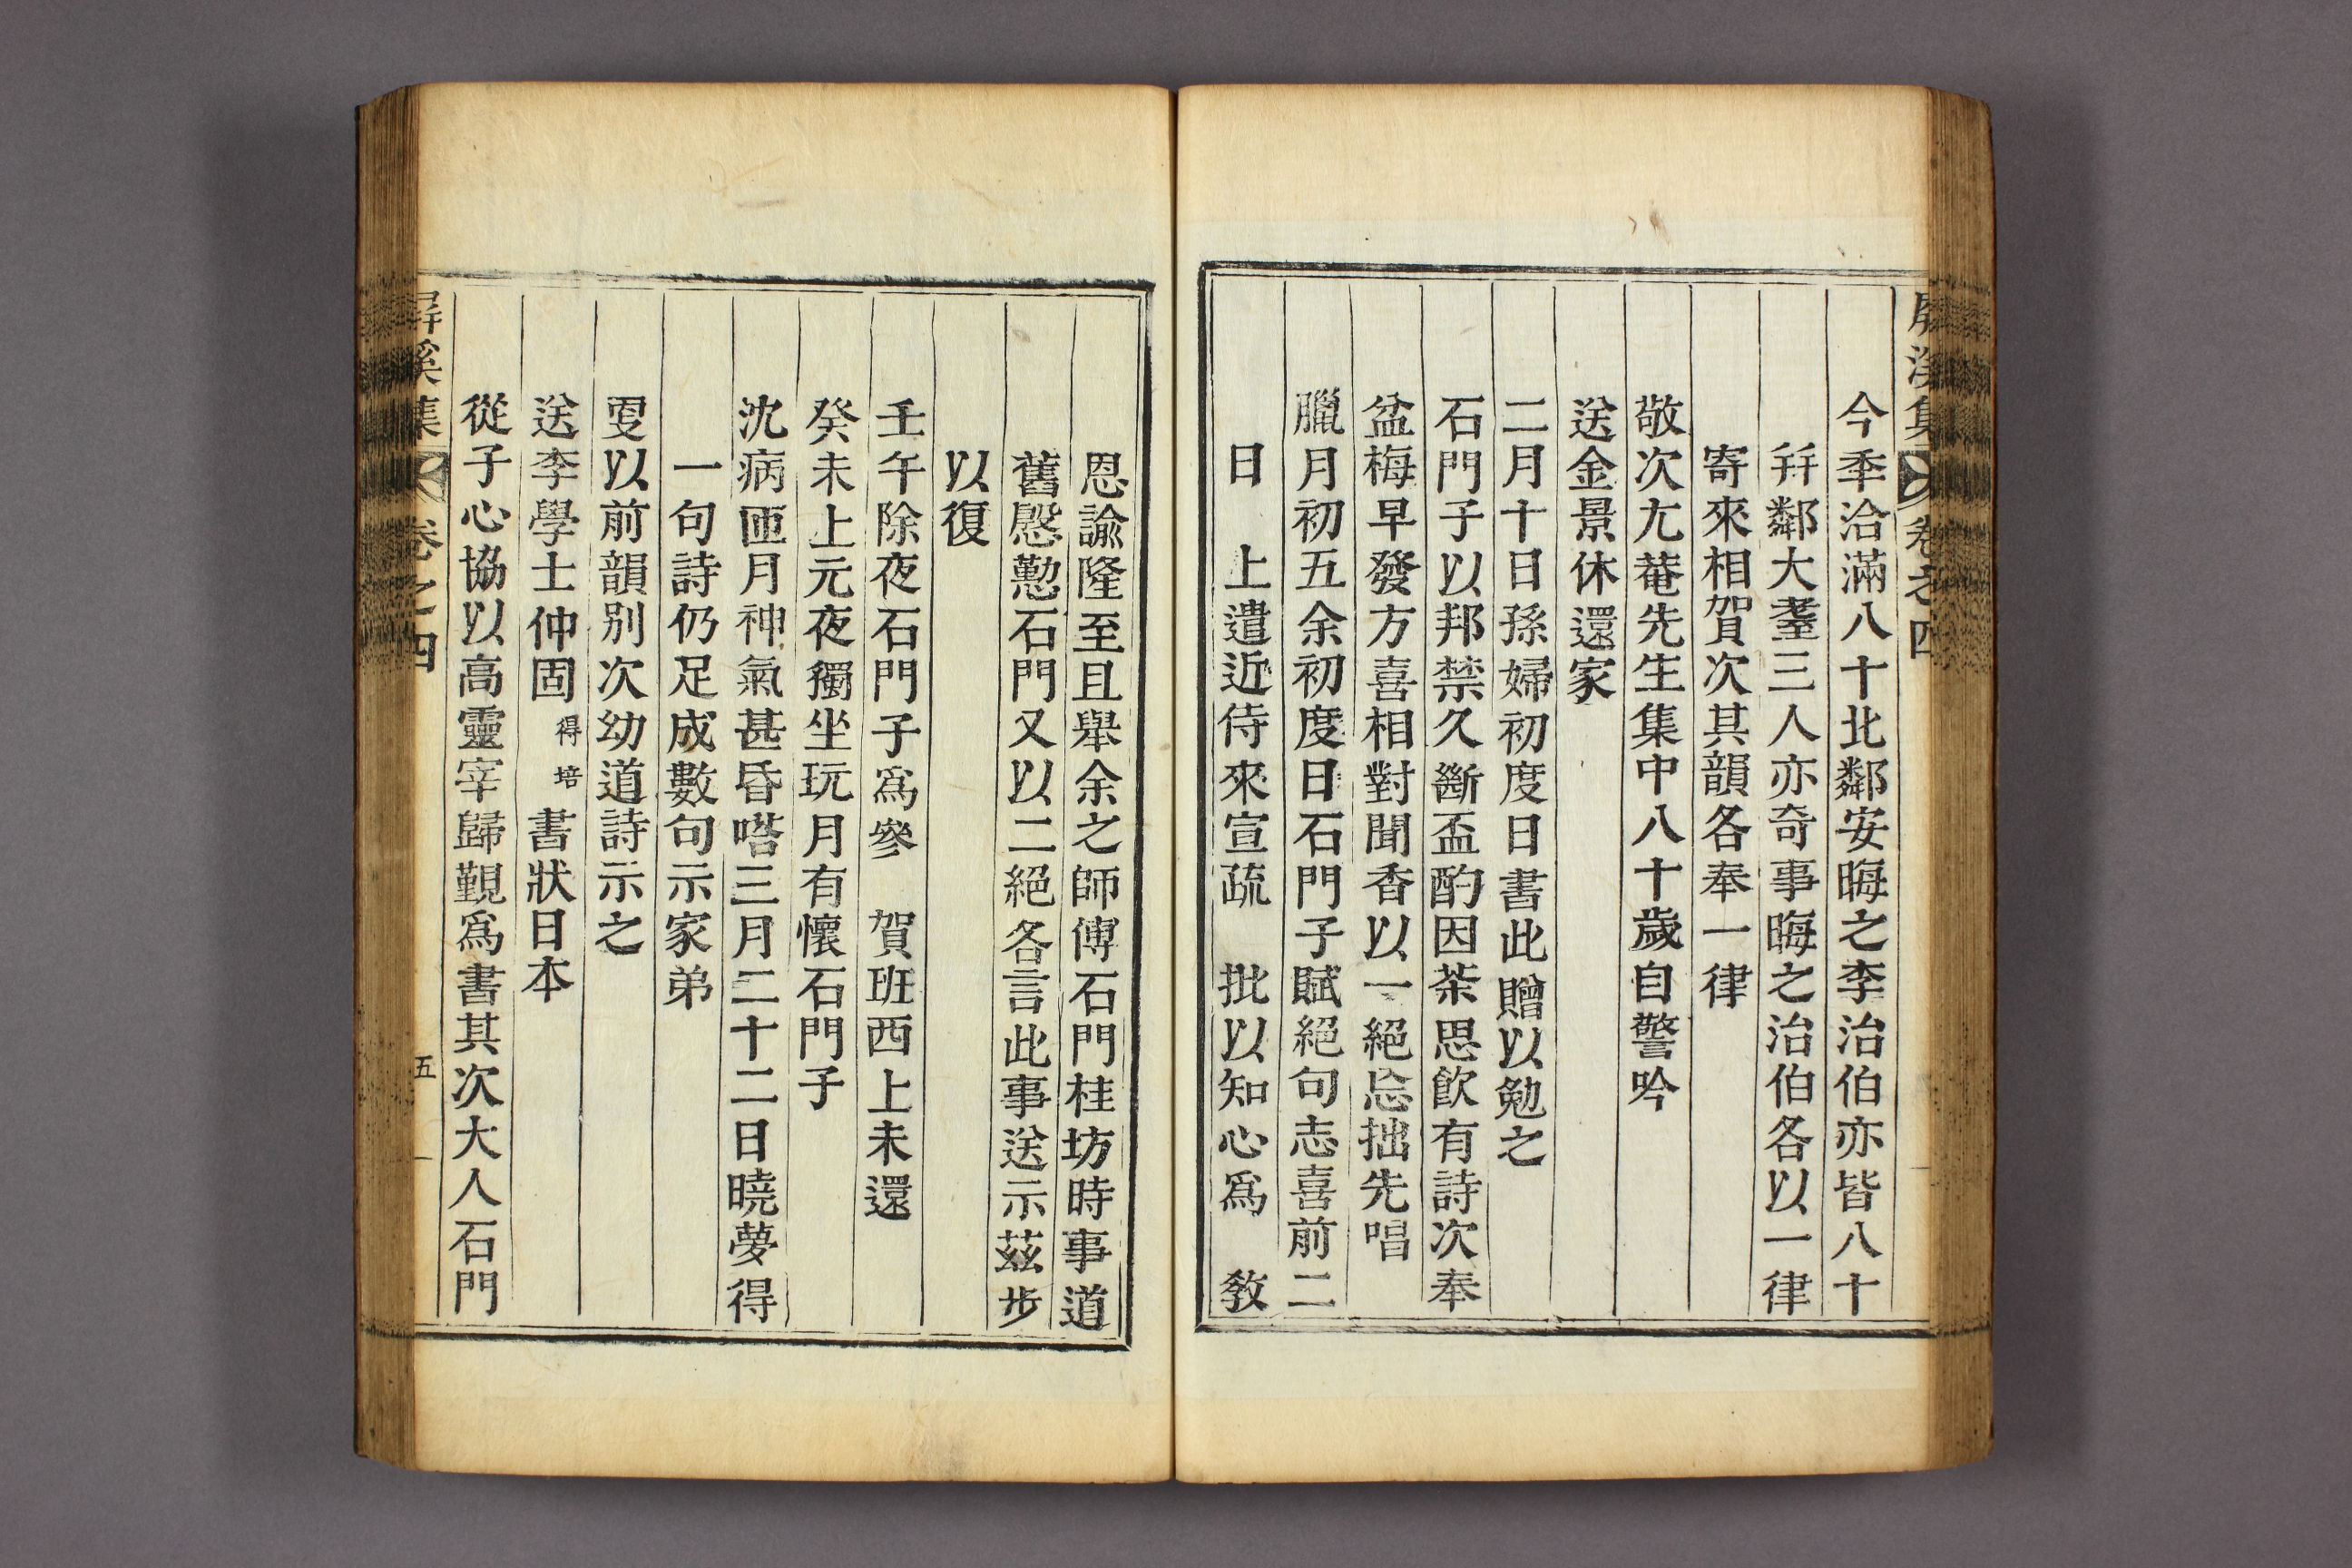 屏溪集 卷之四
今秊洽滿八十北鄰安晦之李治伯亦皆八十
幷鄰大耋三人亦奇事晦之治伯各以一律
寄來相賀次其韻各奉一律
敬次尤菴先生集中八十歲自警吟
送金景休還家
二月十日孫婦初度日書此贈以勉之
石門子以邦禁久斷盃酌因茶思飮有詩次奉
盆梅早發方喜相對聞香以一絕忘拙先唱
臘月初五余初度日石門子賦絕句志喜前二
日 上遣近侍來宣疏 批以知心爲 敎
恩諭隆至且舉余之師傅石門桂坊時事道
舊慇懃石門又以二絕各言此事送示茲步
以復
壬午除夜石門子爲參 賀班西上未還
癸未上元夜獨坐玩月有懷石門子
沈病匝月神氣甚昏㗳三月二十二日曉夢得
一句詩仍足成數句示家弟
更以前韻別次幼道詩示之
送李學士仲固 得培 書狀日本
從子心協以高靈宰歸覲爲書其次大人石門
屏溪集 卷之四 五